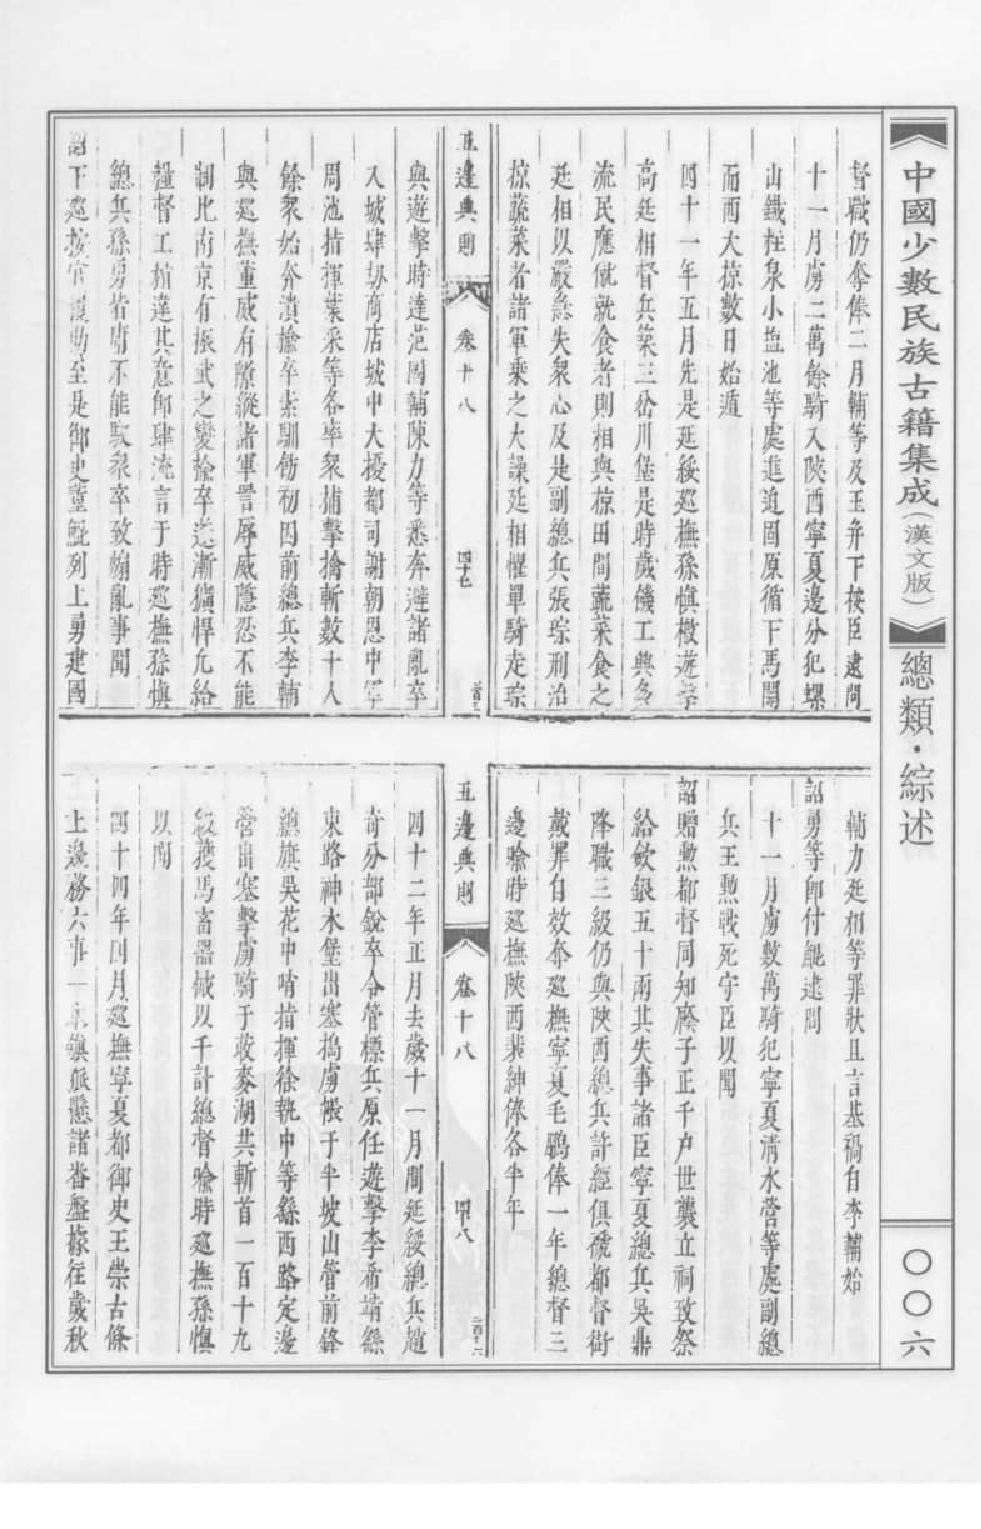 中國少數民族古籍集成（漢文版）
總類·綜述
〇〇六
督職仍奪俸二月輔等及王并下按臣逮問
十一月虜二萬餘騎入陝西寧夏邊分犯螺
山鐵柱泉小塩池等處進迫固原循下馬關
而西大掠數日始遁
四十一年五月先是延綏巡撫孫慎檄遊擊
高廷相督兵築三岔川堡是時歲饑工興多
流民應僦就食者則相與掠田間蔬菜食之
廷相以嚴急失衆心及是副總兵張琮刑治
掠蔬菜者諸軍乘之大譟廷相懼單騎走琮
五邊典則
卷十八
四十七
與遊擊時達范國輔陳力等悉奔避諸亂卒
入城肆刼商店城中大擾都司謝朝恩中軍
周池指揮葉采等各率衆捕擊擒斬數十人
餘衆始奔潰揄卒素馴飭初因前總兵李輔
與巡撫董威有隙縱諸軍詈辱威隱忍不能
制比南京有振武之變揄卒益漸獷悍尤給
糧督工稍違其意即肆流言于時巡撫孫慎
總兵孫勇皆庸不能馭衆卒致煽亂事聞
詔下巡按官 勘至是御史董鯤列上勇建國
輔力廷相等罪狀且言基禍自李輔始
詔勇等即付鯤逮問
十一月虜數萬騎犯寧夏清水營等處副總
兵王勲戰死守臣以聞
詔贈勲都督同知廕子正千户世襲立祠致祭
給歛銀五十兩其失事諸臣寧夏總兵吳鼎
降職三級仍與陝西總兵許經俱褫都督銜
戴罪自效奉巡撫寧夏毛鵬俸一年總督三
邊喻時巡撫陝西裴紳俸各半年
五邊典則
卷十八
四十八
四十二年正月去歲十一月間延綏總兵趙
奇分部銳卒令管標兵原任遊擊李希靖繇
東路神木堡出塞搗虜帳于半坡山管前鋒
總旗吳花中哨指揮徐執中等繇西路定邊
營出塞擊虜騎于荍麥湖共斬首一百十九
級獲馬畜器械以千計總督喻時巡撫孫慎
以聞
四十四年四月巡撫寧夏都御史王崇古條
上邊務六事一 鎮孤懸諸畨盤據往歲秋